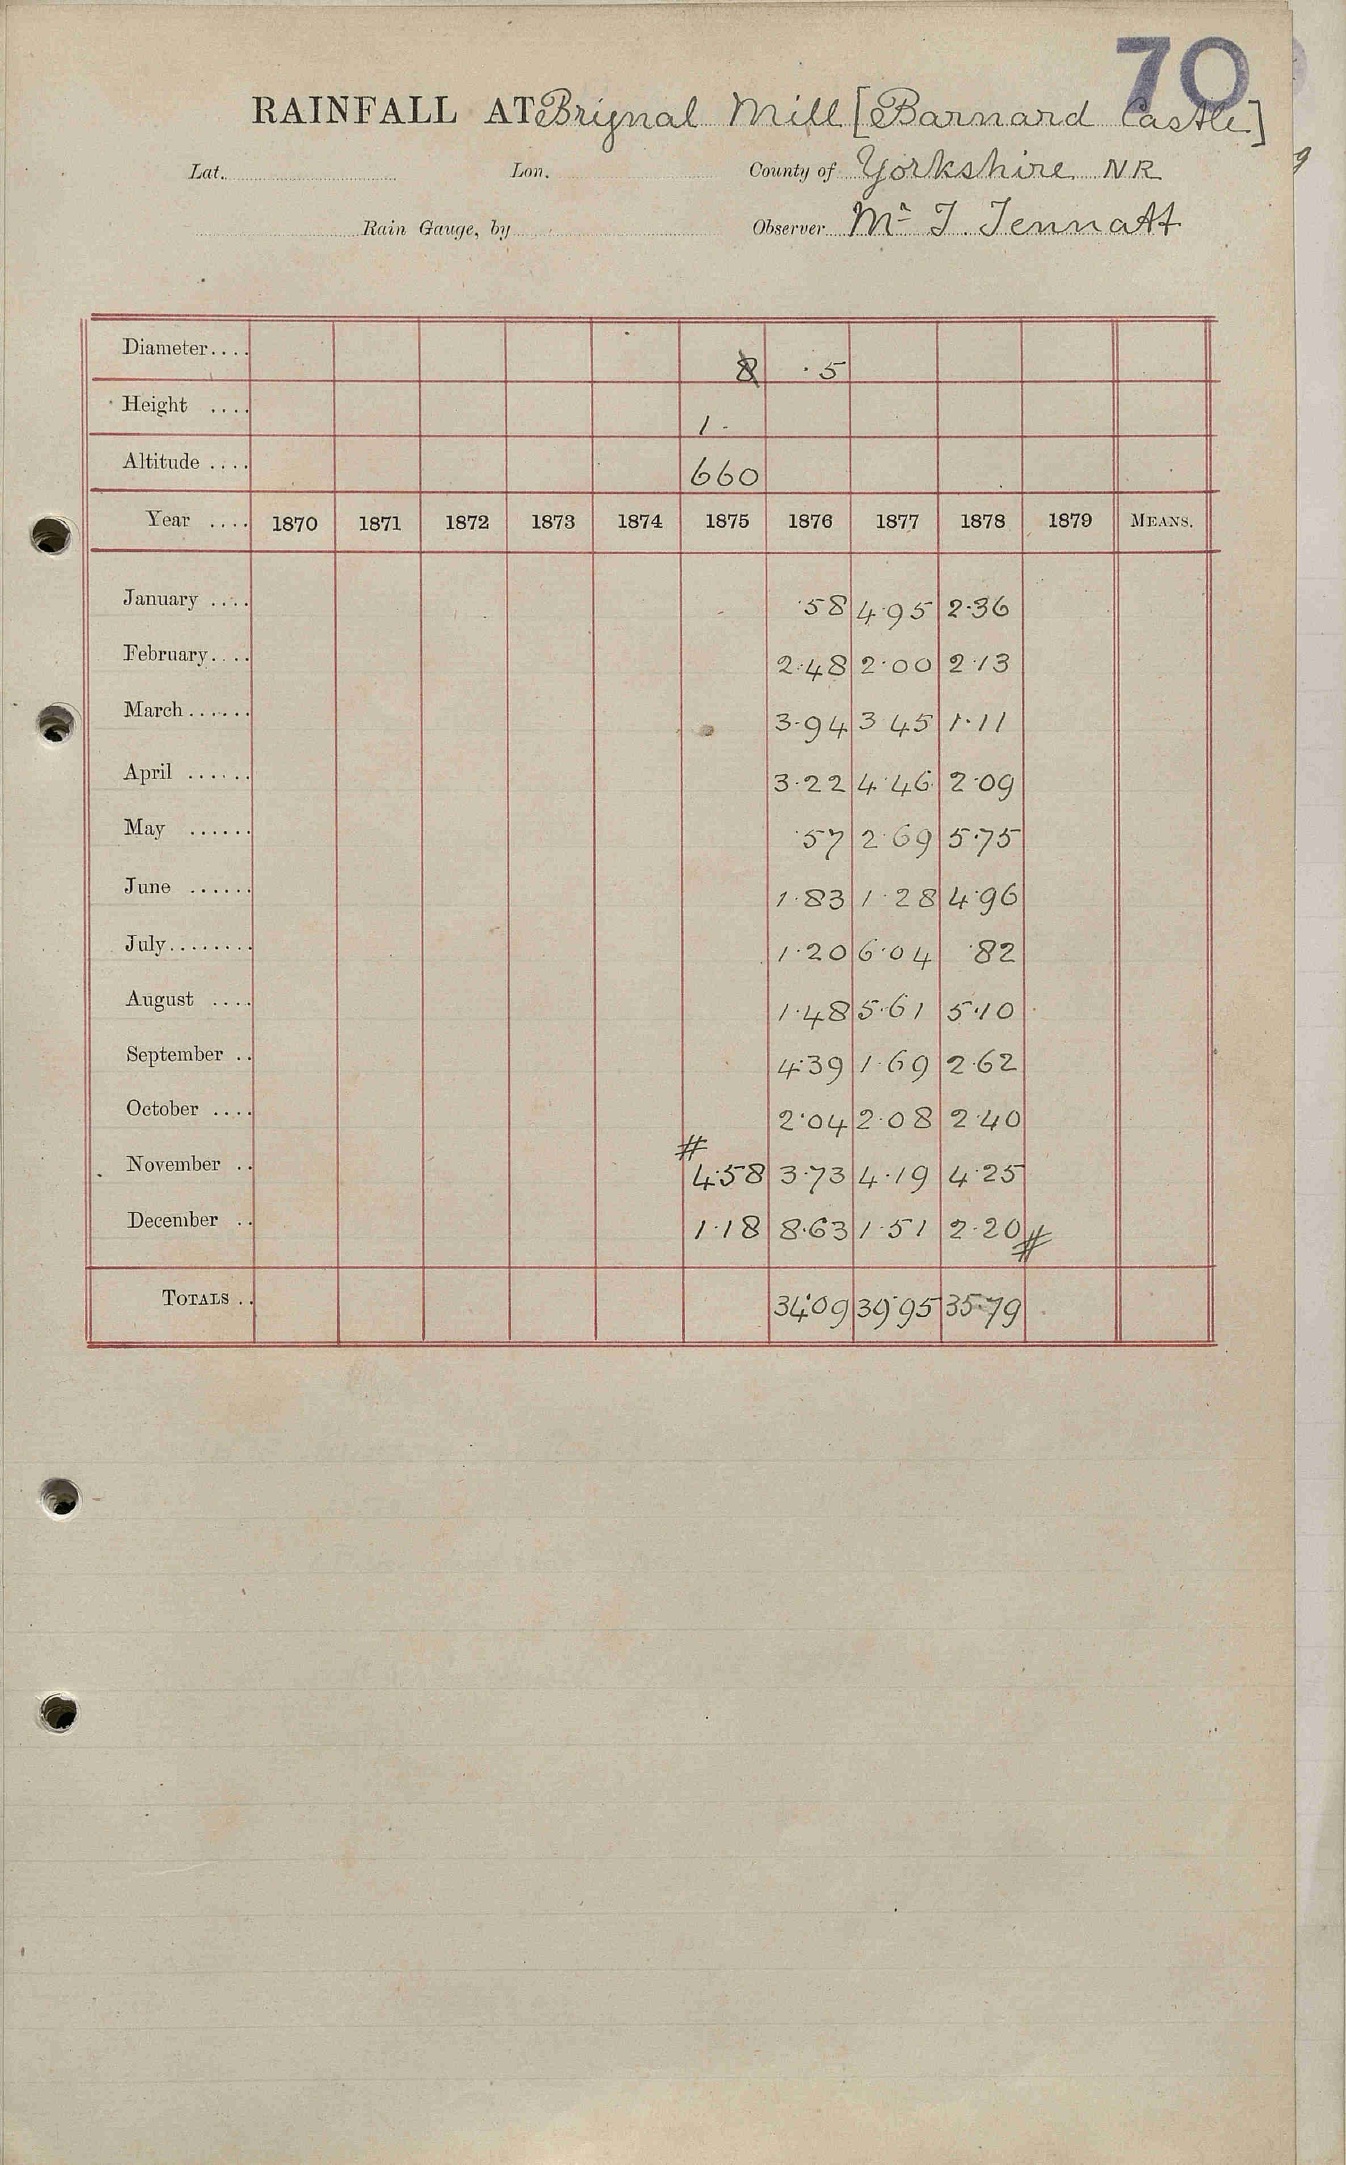 70
RAINFALL AT Brignal Mill [Barnard Castle]
Lat. Lon. County of Yorkshire NR
Rain Gauge, by Observer Mr T. Tennatt
Diameter.... 8 .5
Height .... 1-
Altitude .... 660
Year .... 1870 1871 1872 1873 1874 1875 1876 1877 1878 1879 MEANS.
January .... .58 4.95 2.36
February.... 2.48 2.00 2.13
March...... 3.94 3 45 1.11
April ...... 3.22 4.46 2.09
May ...... .57 2.69 5.75
June ...... 1.83 1.28 4.96
July........ 1.20 6.04 .82
August .... 1.48 5.61 5.10
September .. 4.39 1.69 2.62
October .... 2.04 2.08 2.40
#
November .. 4.58 3.73 4.19 4.25
December .. 1.18 8.63 1.51 2.20 #
TOTALS .. 34.09 39.95 35.79